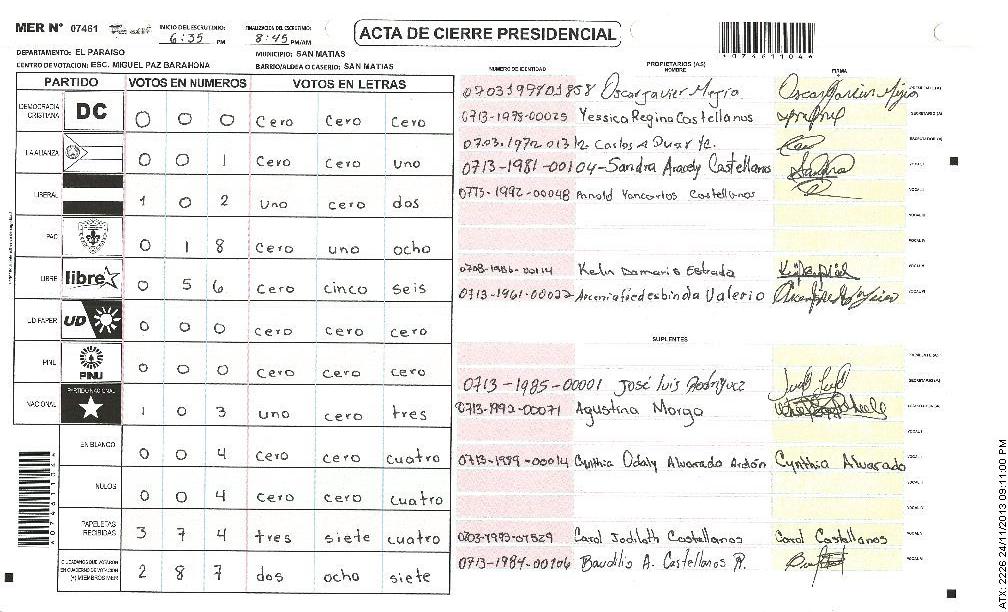 MER N° 07461
INICIO DEL ESCRUTINIO: 6:35 PM
FINALIZACION DEL ESCRUTINIO: 8:45 PM/AM
ACTA DE CIERRE PRESIDENCIAL
*07461104*
DEPARTAMENTO: EL PARAISO
MUNICIPIO: SAN MATIAS
CENTRO DE VOTACION: ESC. MIGUEL PAZ BARAHONA
BARRIO/ALDEA O CASERIO: SAN MATIAS
PARTIDO VOTOS EN NUMEROS VOTOS EN LETRAS
DEMOCRACIA CRISTIANA DC 0 0 0 cero cero cero
LA ALIANZA 0 0 1 cero cero uno
LIBERAL 1 0 2 uno cero dos
PAC 0 1 8 cero uno ocho
LIBRE libre 0 5 6 cero cinco seis
UD FAPER UD 0 0 0 cero cero cero
PINU PINU 0 0 0 cero cero cero
NACIONAL PARTIDO NACIONAL 1 0 3 uno cero tres
EN BLANCO 0 0 4 cero cero cuatro
NULOS 0 0 4 cero cero cuatro
PAPELETAS RECIBIDAS 3 7 4 tres siete cuatro
CIUDADANOS QUE VOTARON EN CUADERNO DE VOTACION (+) MIEMBROS MER 2 8 7 dos ocho siete
*07461104*
NUMERO DE IDENTIDAD PROPIETARIOS (AS) NOMBRE FIRMA
0703199801858 Oscar Javier Mejia
0713-1975-00025 Yessica Regina Castellanos
0703-1972-01312 Carlos A
0713-1981-00104 - Sandra Aracely Castellanos Sandra
0713-1992-00048 Arnold Yancarlos Castellanos
0708-1986-00114 Kelin Damaris Estrada
0713-1961-00022 Valerio
SUPLENTES
0713-1985-00001 José Luis Rodriguez
0713-1992-00071 Agustina Morga
0713-1989-00014 Cynthia Odaly Alvarado Ardón Cynthia Alvarado
0703-1993-01529 Carol Jodiloth Castellanos Carol Castellanos
0713-1984-00106 Baudilio A. Castellanos R.
ATX: 2226 24/11/2013 09:11:00 PM